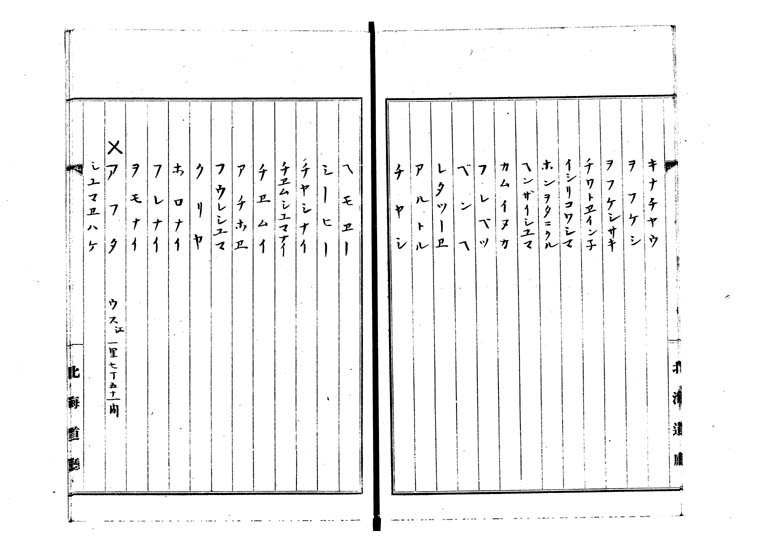 キナチヤウ
ヲフケシ
ヲフケシサキ
チワトヱイン子
イシリコワシマ
ホンヲタニクル
ヘンザイシユマ
カムイヌカ
フレベツ
ベンヘ
レタツーヱ
アルトル
チヤシ
北海道廳
ヘモヱー
シーヒー
チヤシナイ
チヱムシユマナイ
チヱムイ
アチホヱ
フウレシユマ
クリヤ
ホロナイ
フレナイ
ヲモナイ
✕アフタ ウス江一里七丁五十一間
シユマヲハケ
北海道廳